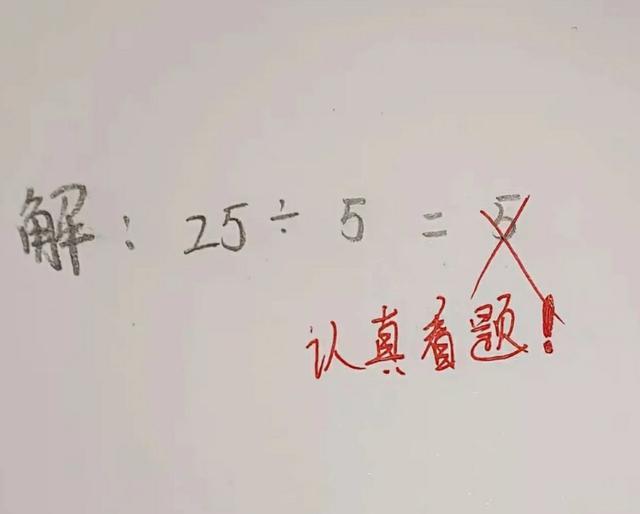 解：25÷5=5
认真看题！